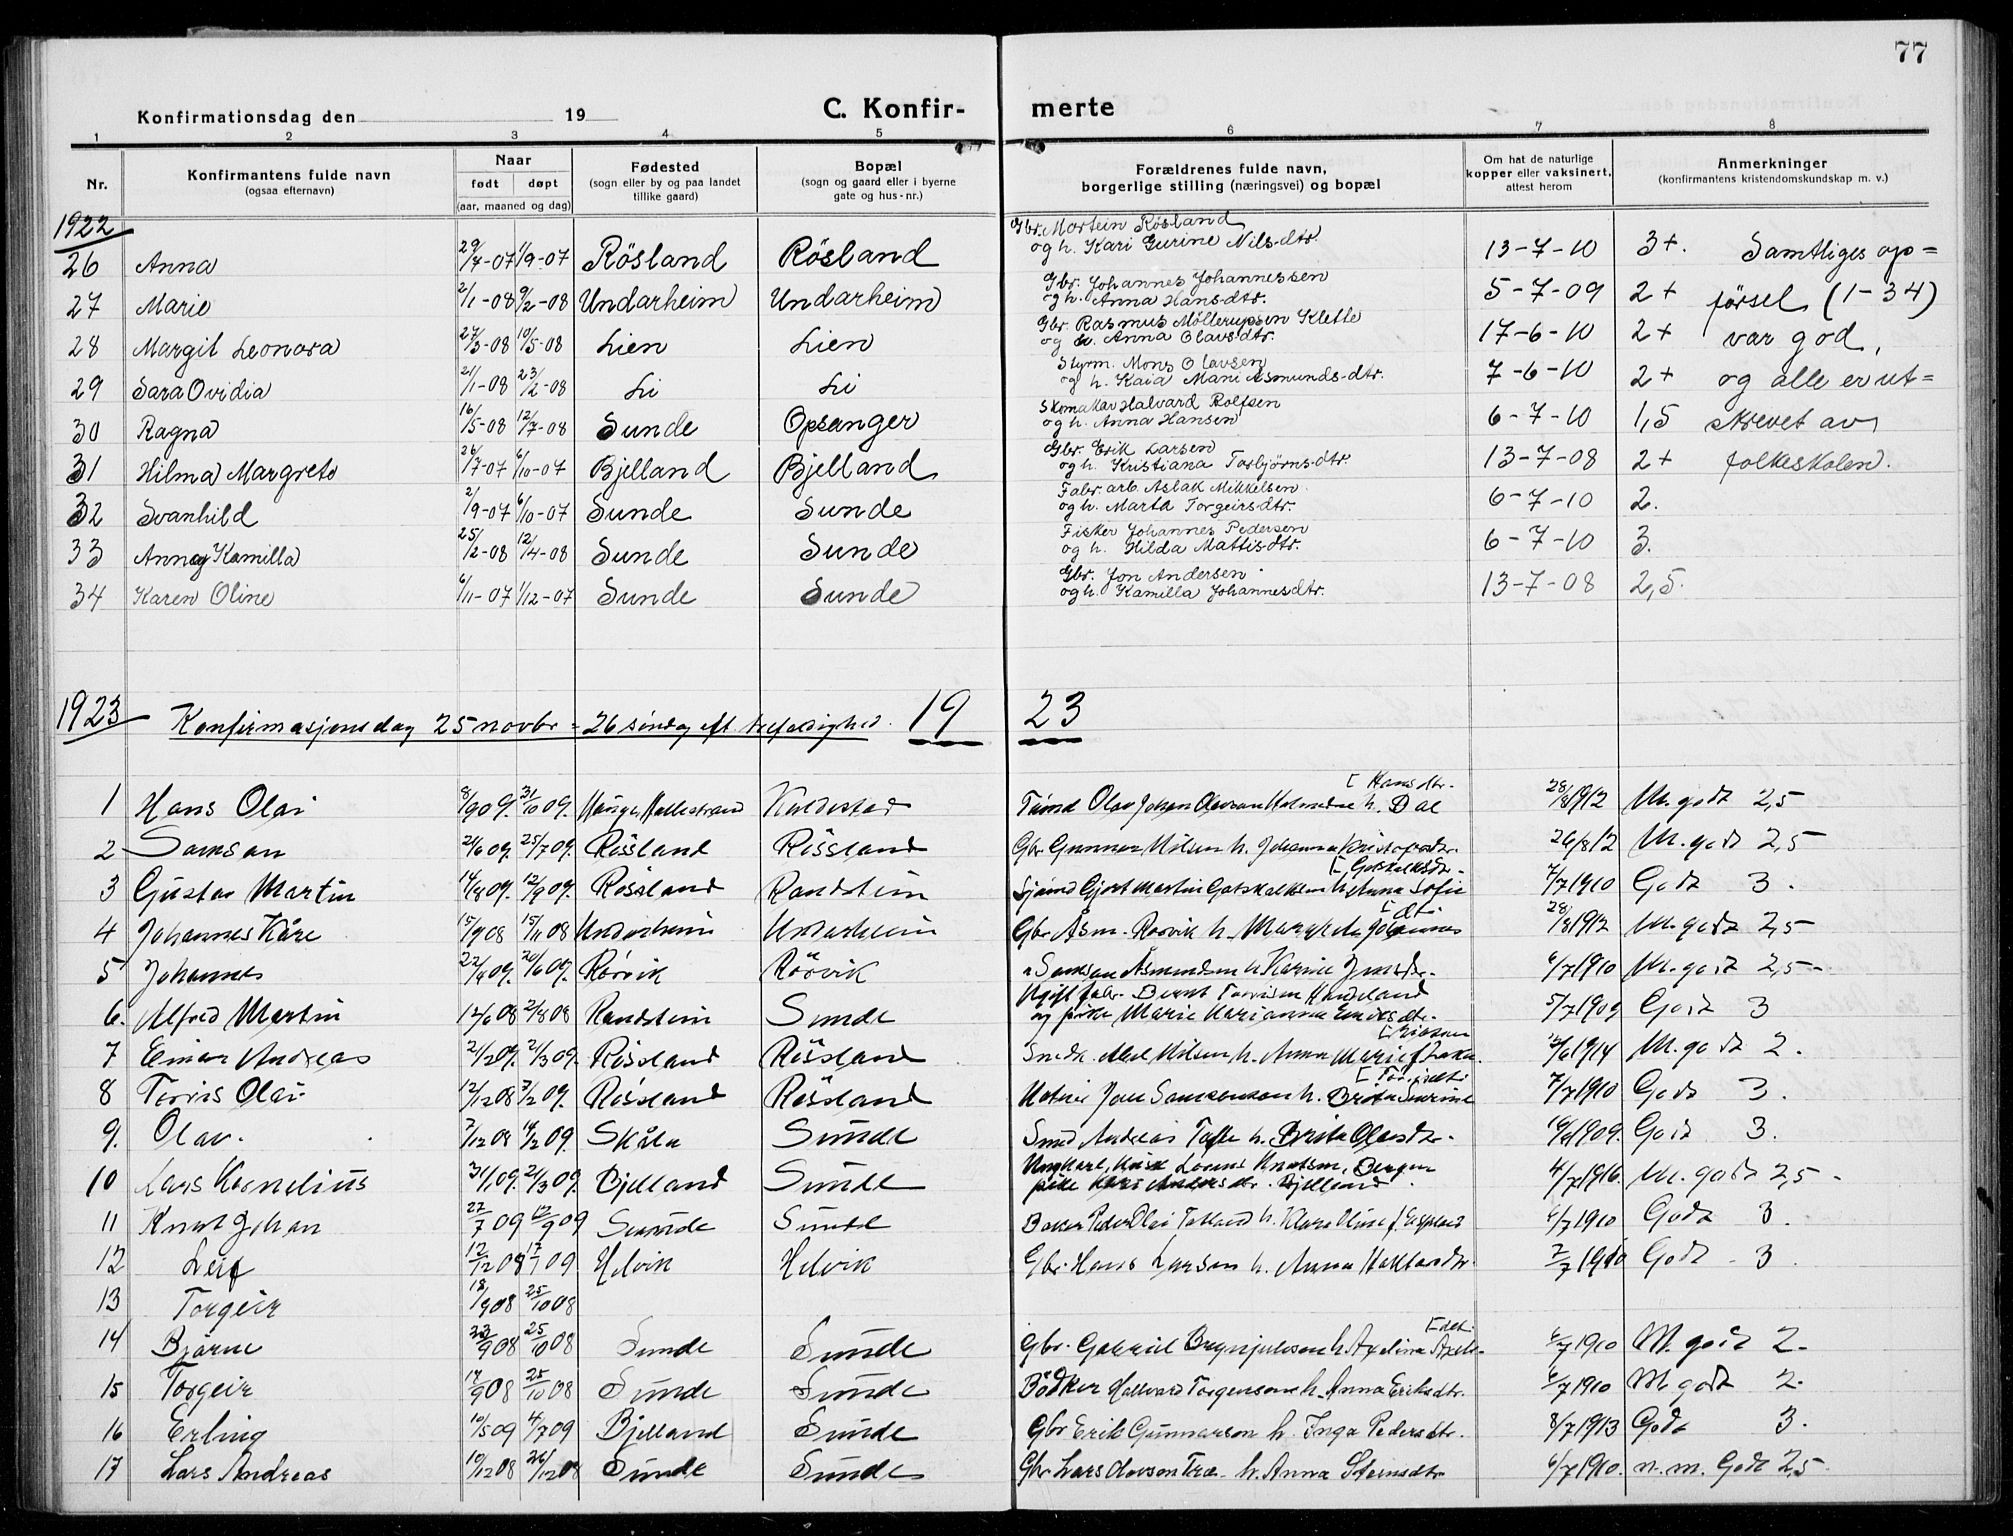 77
Konfirmationsdag den 19
C. Konfir- merte
1 2 3 4 5 6 7 8
Nr.
Konfirmantens fulde navn
(ogsaa efternavn)
Naar
født døpt
(aar, maaned og dag)
Fødested
(sogn eller by og paa landet
tillike gaard)
Bopæl
(sogn og gaard eller i byerne
gate og hus-nr.)
Forældrenes fulde navn,
borgerlige stilling (næringsvei) og bopæl
Om hat de naturlige
kopper eller vaksinert,
attest herom
Anmerkninger
(konfirmantens kristendomskundskap m. v.)
1922
Gbr. Mortein Røsland
26 Anna 29/7-07 1/9-07 Røsland Røsland og h. Kari Gurine Nils-dtr. 13-7-10 3+. Samtliges op=
Gbr. Johannes Johannessen
27 Marie 2/1-08 9/2-08 Undarheim Undarheim og h. Anna Hans-dtr. 5-7-09 2+ førsel (1-34)
Gbr. Rasmus Möllerupsen Klette
28 Margit Leonora 27/3-08 10/5-08 Lien Lien og h. Anna Olavs-dtr. 17-6-10 2+ var god,
Styrm. Mons Olavsen
29 Sara Ovidia 21/1-08 23/2-08 Li Li og h. Kaia Marie Asmunds-dtr. 7-6-10 2+ og alle er ut=
Skomakar Halvard Rolfsen
30 Ragna 16/5-08 12/7-08 Sunde Opsanger og h. Anna Hansen 6-7-10 1,5 skrevet av
Gbr. Erik Larsen
31 Hilma Margrete 26/7-07 6/10-07 Bjelland Bjelland og h. Kristiana Torbjørns-dtr. 13-7-08 2+ folkeskolen.
Fabr. arb. Aslak Mikkelsen
32 Svanhild 2/9-07 6/10-07 Sunde Sunde og h. Marta Torgeirs-dtr. 6-7-10 2.
Fisker Johannes Pedersen
33 Anna Kamilla 25/2-08 12/4-08 Sunde Sunde og h. Hilda Mattis-dtr. 6-7-10 3.
Gbr. Jon Andersen
34 Karen Oline 6/11-07 1/12-07 Sunde Sunde og h. Kamilla Johannesdtr. 13-7-08 2,5.
1923 Konfirmasjonsdag 25 novbr = 26 søndag eft. trefoldighed. 19 23
[Hansdtr.
1 Hans Olai 8/9 09. 31/10 09. Kaldestad Olav Johan h. Dal 28/8 1912 M. godt 2,5
2 Samson 09. 25/7 09. Røssland Røssland Gbr. Gunnar Nilsen h. Johanna 26/8 12 M. godt 2,5
[Gotskalksdtr.
3 Gustav Martin 14/8 09. 12/9 09. Røssland Randstein Gjert Martin Gotskalksen h. Anna Sofie 7/7 1910 Godt 3.
[dtr.
4 Johannes Kåre 15/9 08 15/11 08 Undarheim Undarheim Gbr. Åsm. Rørvik h. Margreta Johannes 28/8 1912 M. godt 2,5
5 Johannes 22/4 09. 20/6 09. Rørvik Rørvik " Samson Asmundsen h. Karine Jonsdtr. 6/7 1910 M. godt 2,5
Ugift fabr. Bernt Torrisen Handeland
6. Alfred Martin 12/6 08 2/8 08 Randstein Sunde og pike Marie Karianna dtr. 5/7 1909 Godt 3
7 Einar Andreas 21/2 09. 21/3 09. Røssland Røssland Nilsen h. Anna Marie 1914 M. godt 2.
[dtr.
8 Torris Olai 12/12 08 7/2 09. Røssland Røssland Jon Samsonson h. Brita Surine 7/7 1910 Godt 3.
9. Olav. 7/12 08 14/2 09. Skåla Sunde Smed Andreas h. Brita Olasdtr. 1909. Godt 3.
Ungkarl, Knutsen, Bergen
10 Lars Kornelius 31/1 09. 21/3 09. Bjelland Sunde pike Kari Andersdtr. Bjelland. 4/7 1916. M. godt 2,5
11 Knut Johan 22/7 09 12/9 09 Sunde Sunde Baker Peder Olai h. Klara 6/7 1910 Godt 3.
12 Leif 12/12 08 17/1 09 Helvik Helvik Gbr. Hans Larsen h. Anna 7/7 1910 Godt 3.
13 Torgeir 18/9 08 25/10 08
[dtr.
14 Bjarne 23/9 08 25/10 08 Sunde Sunde Gbr. Gabriel Brynjulvson h. Axelina Axels- 6/7 1910 M. godt 2.
15 Torgeir 14/9 08 25/10 08 Sunde Sunde Bødker Hallvard Torgeirson h. Anna Eriksdtr. 6/7 1910 M godt 2.
16 Erling 10/5 09 4/7 09 Bjelland Sunde Gbr Erik Gunnarson h. Inga Pedersdtr. 8/7 1913 Godt 3.
17 Lars Andreas 10/12 08 26/12 08 Sunde Sunde Gbr. Lars Olavson Træ h. Anna Steinsdtr 6/7 1910. n. m. Godt 2,5.